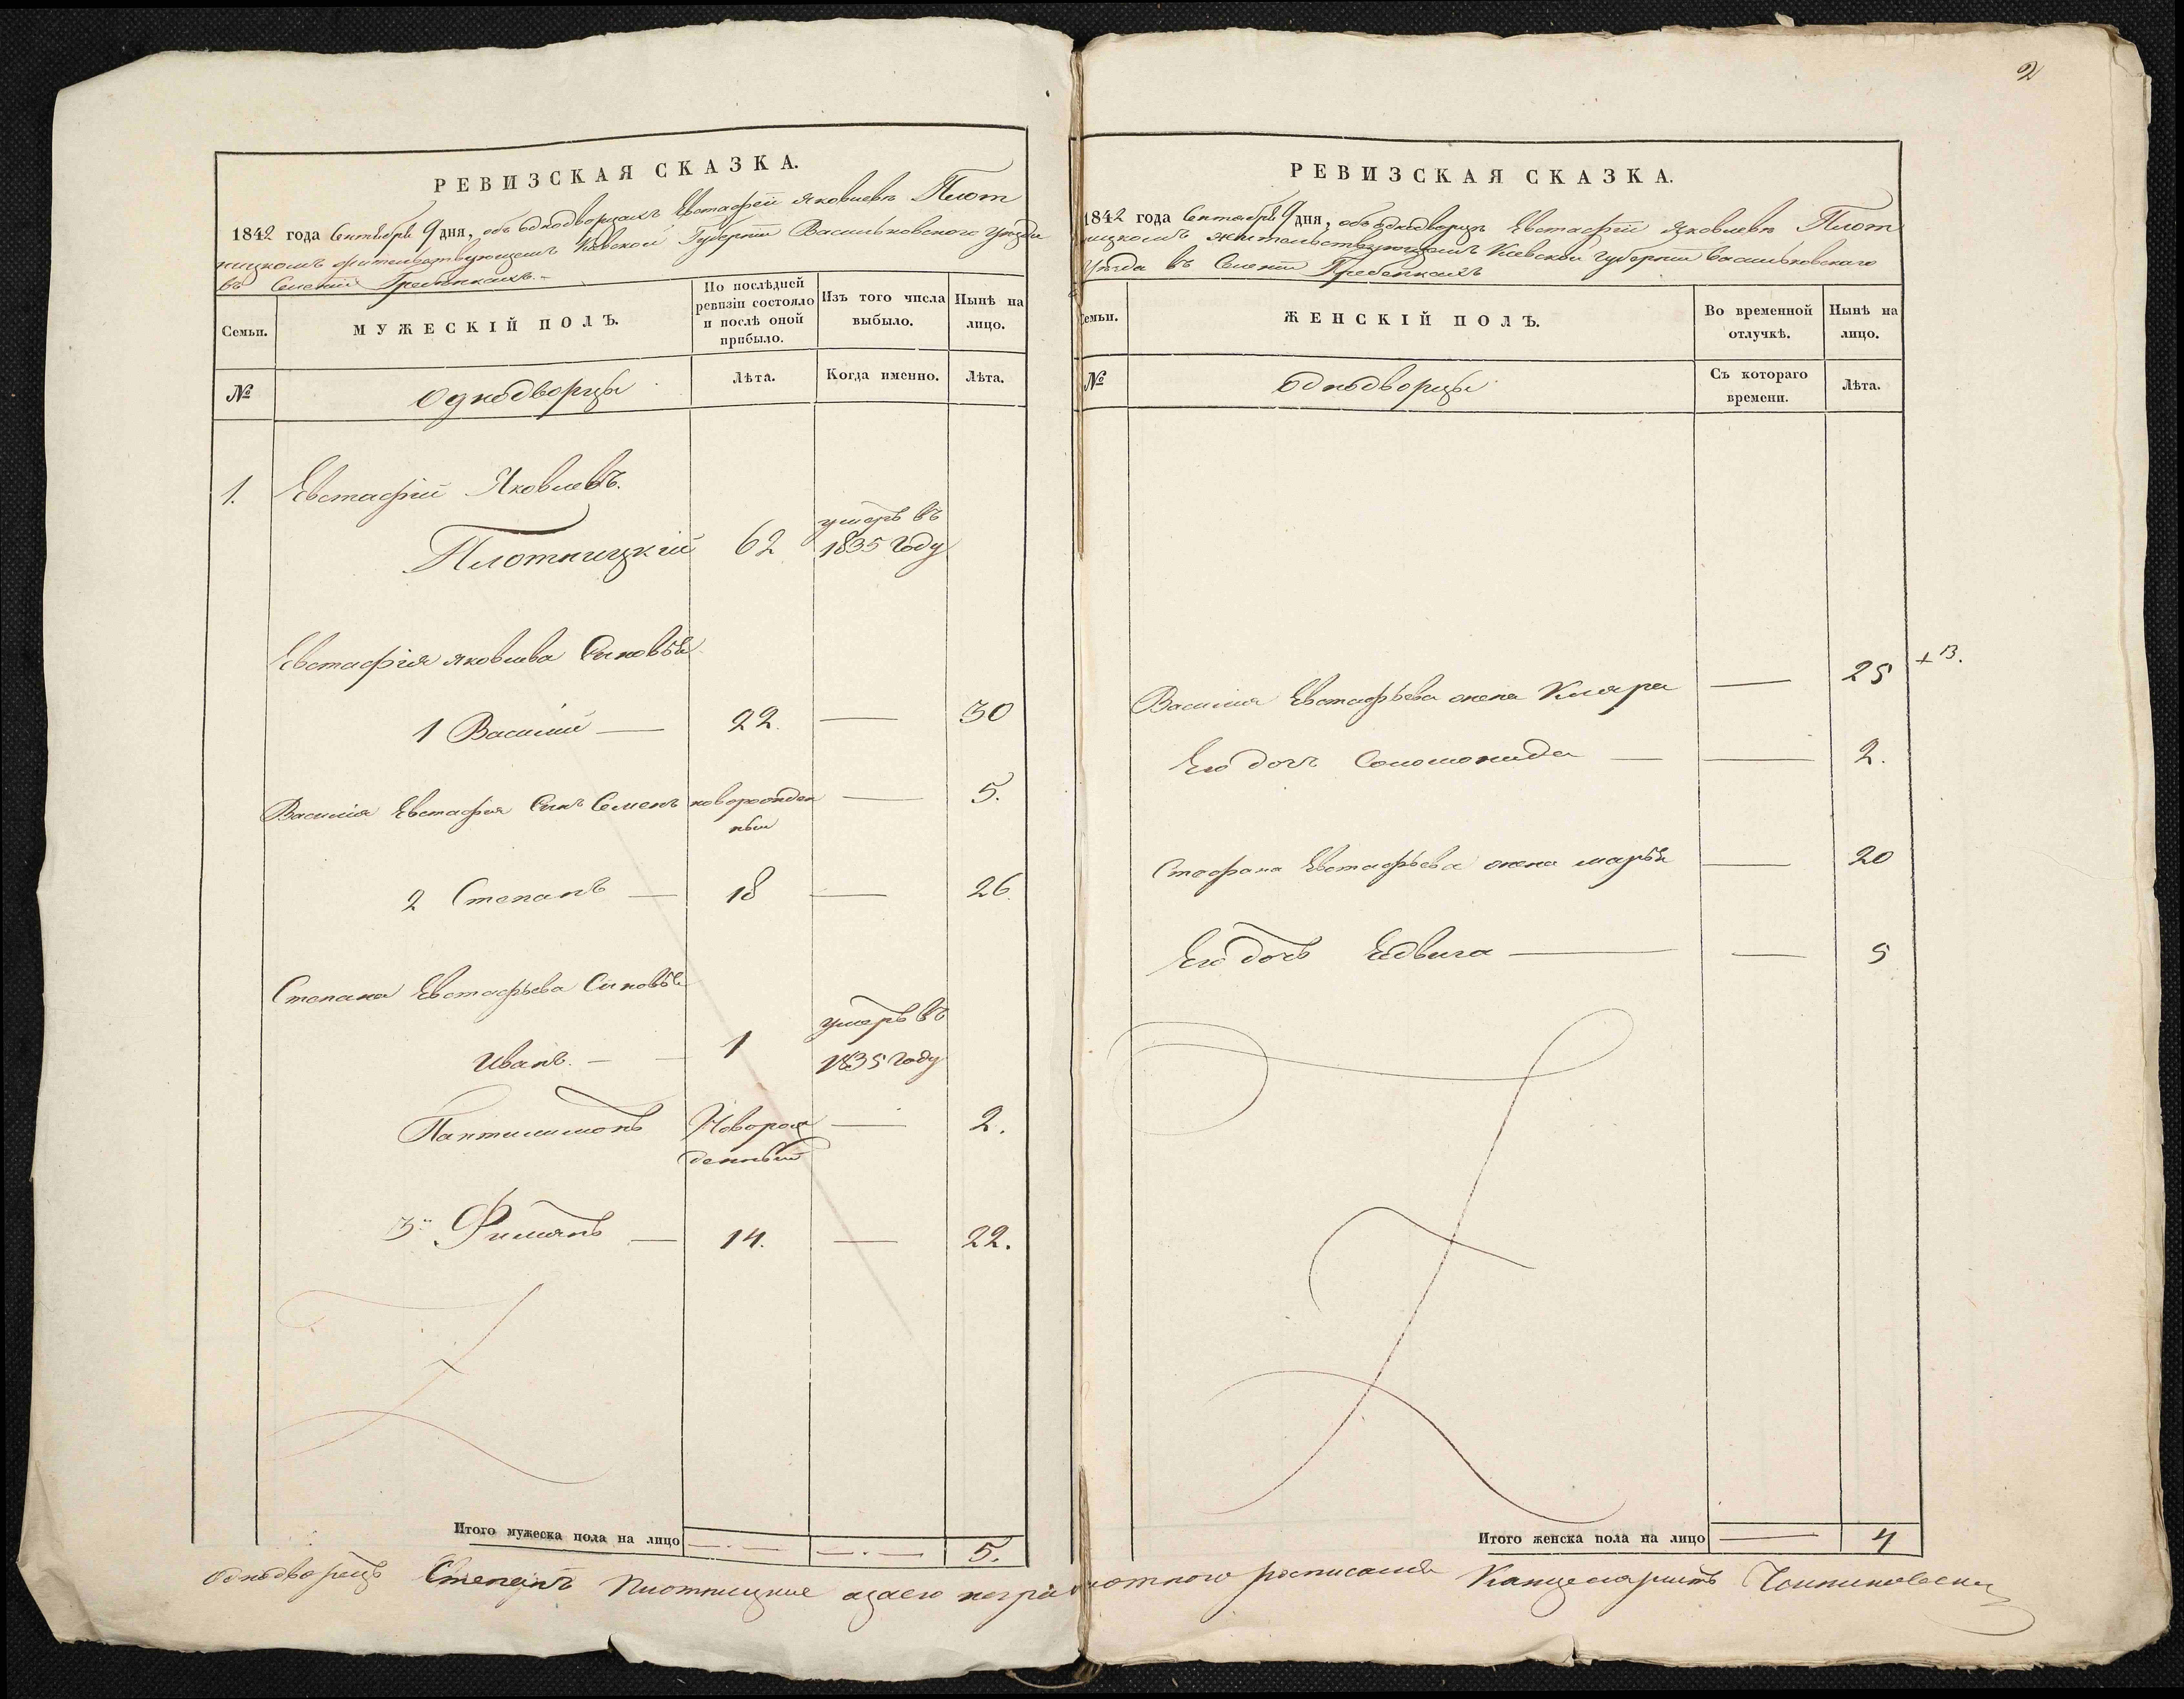 2
РЕВИЗСКАЯ СКАЗКА.
1842 года Сентября 9 дня, объ однодворцахъ Евстафеи Яковлевѣ Плот
ницкомъ жительствующемъ Киевской Губернии Васильковского уѣзда
въ Селении Гребенкахъ.-
Семьи.
МУЖЕСКІЙ ПОЛЪ.
По послѣдней ревизіи состояло и послѣ оной прибыло.
Изъ того числа выбыло.
Нынѣ на лицо.
№
Однодворцы
Лѣта.
Когда именно.
Лѣта.
1. Евстафій Яковлевъ.
умеръ въ
Плотницкій 62 1835 году
Евстафія Яковлева Сыновья
1 Василий — 22. — 30
Василія Евстафія Сынъ Семенъ новорожден — 5.
ный
2 Степанъ — 18 — 26.
Степана Евстафьева Сыновья
умеръ въ
Иванъ. — 1 1835 году
Пантилимонъ Новорож — 2.
денный
3й Филианъ — 14. — 22.
Итого мужеска пола на лицо — . — — . — 5.
РЕВИЗСКАЯ СКАЗКА.
1842 года Сентября 9 дня, объ однодворцѣ Евстафіи Яковлевѣ Плот
ницкомъ жительствующемъ Киевской Губерніи Васильковскаго
Уѣзда въ Селеніи Гребенкахъ
Семьи.
ЖЕНСКІЙ ПОЛЪ.
Во временной отлучкѣ.
Нынѣ на лицо.
№
Однодворцы
Съ котораго времени.
Лѣта.
Василия Евстафьева жена Клара — 25 + В.
Его дочь Соломонида — — 2.
Стефана Евстафьева жена марья — 20
Его дочь Едвига — — 5
Итого женска пола на лицо — 4
Однодворецъ Степанъ Плотницкие азаего неграмотного росписался Канцеляристъ